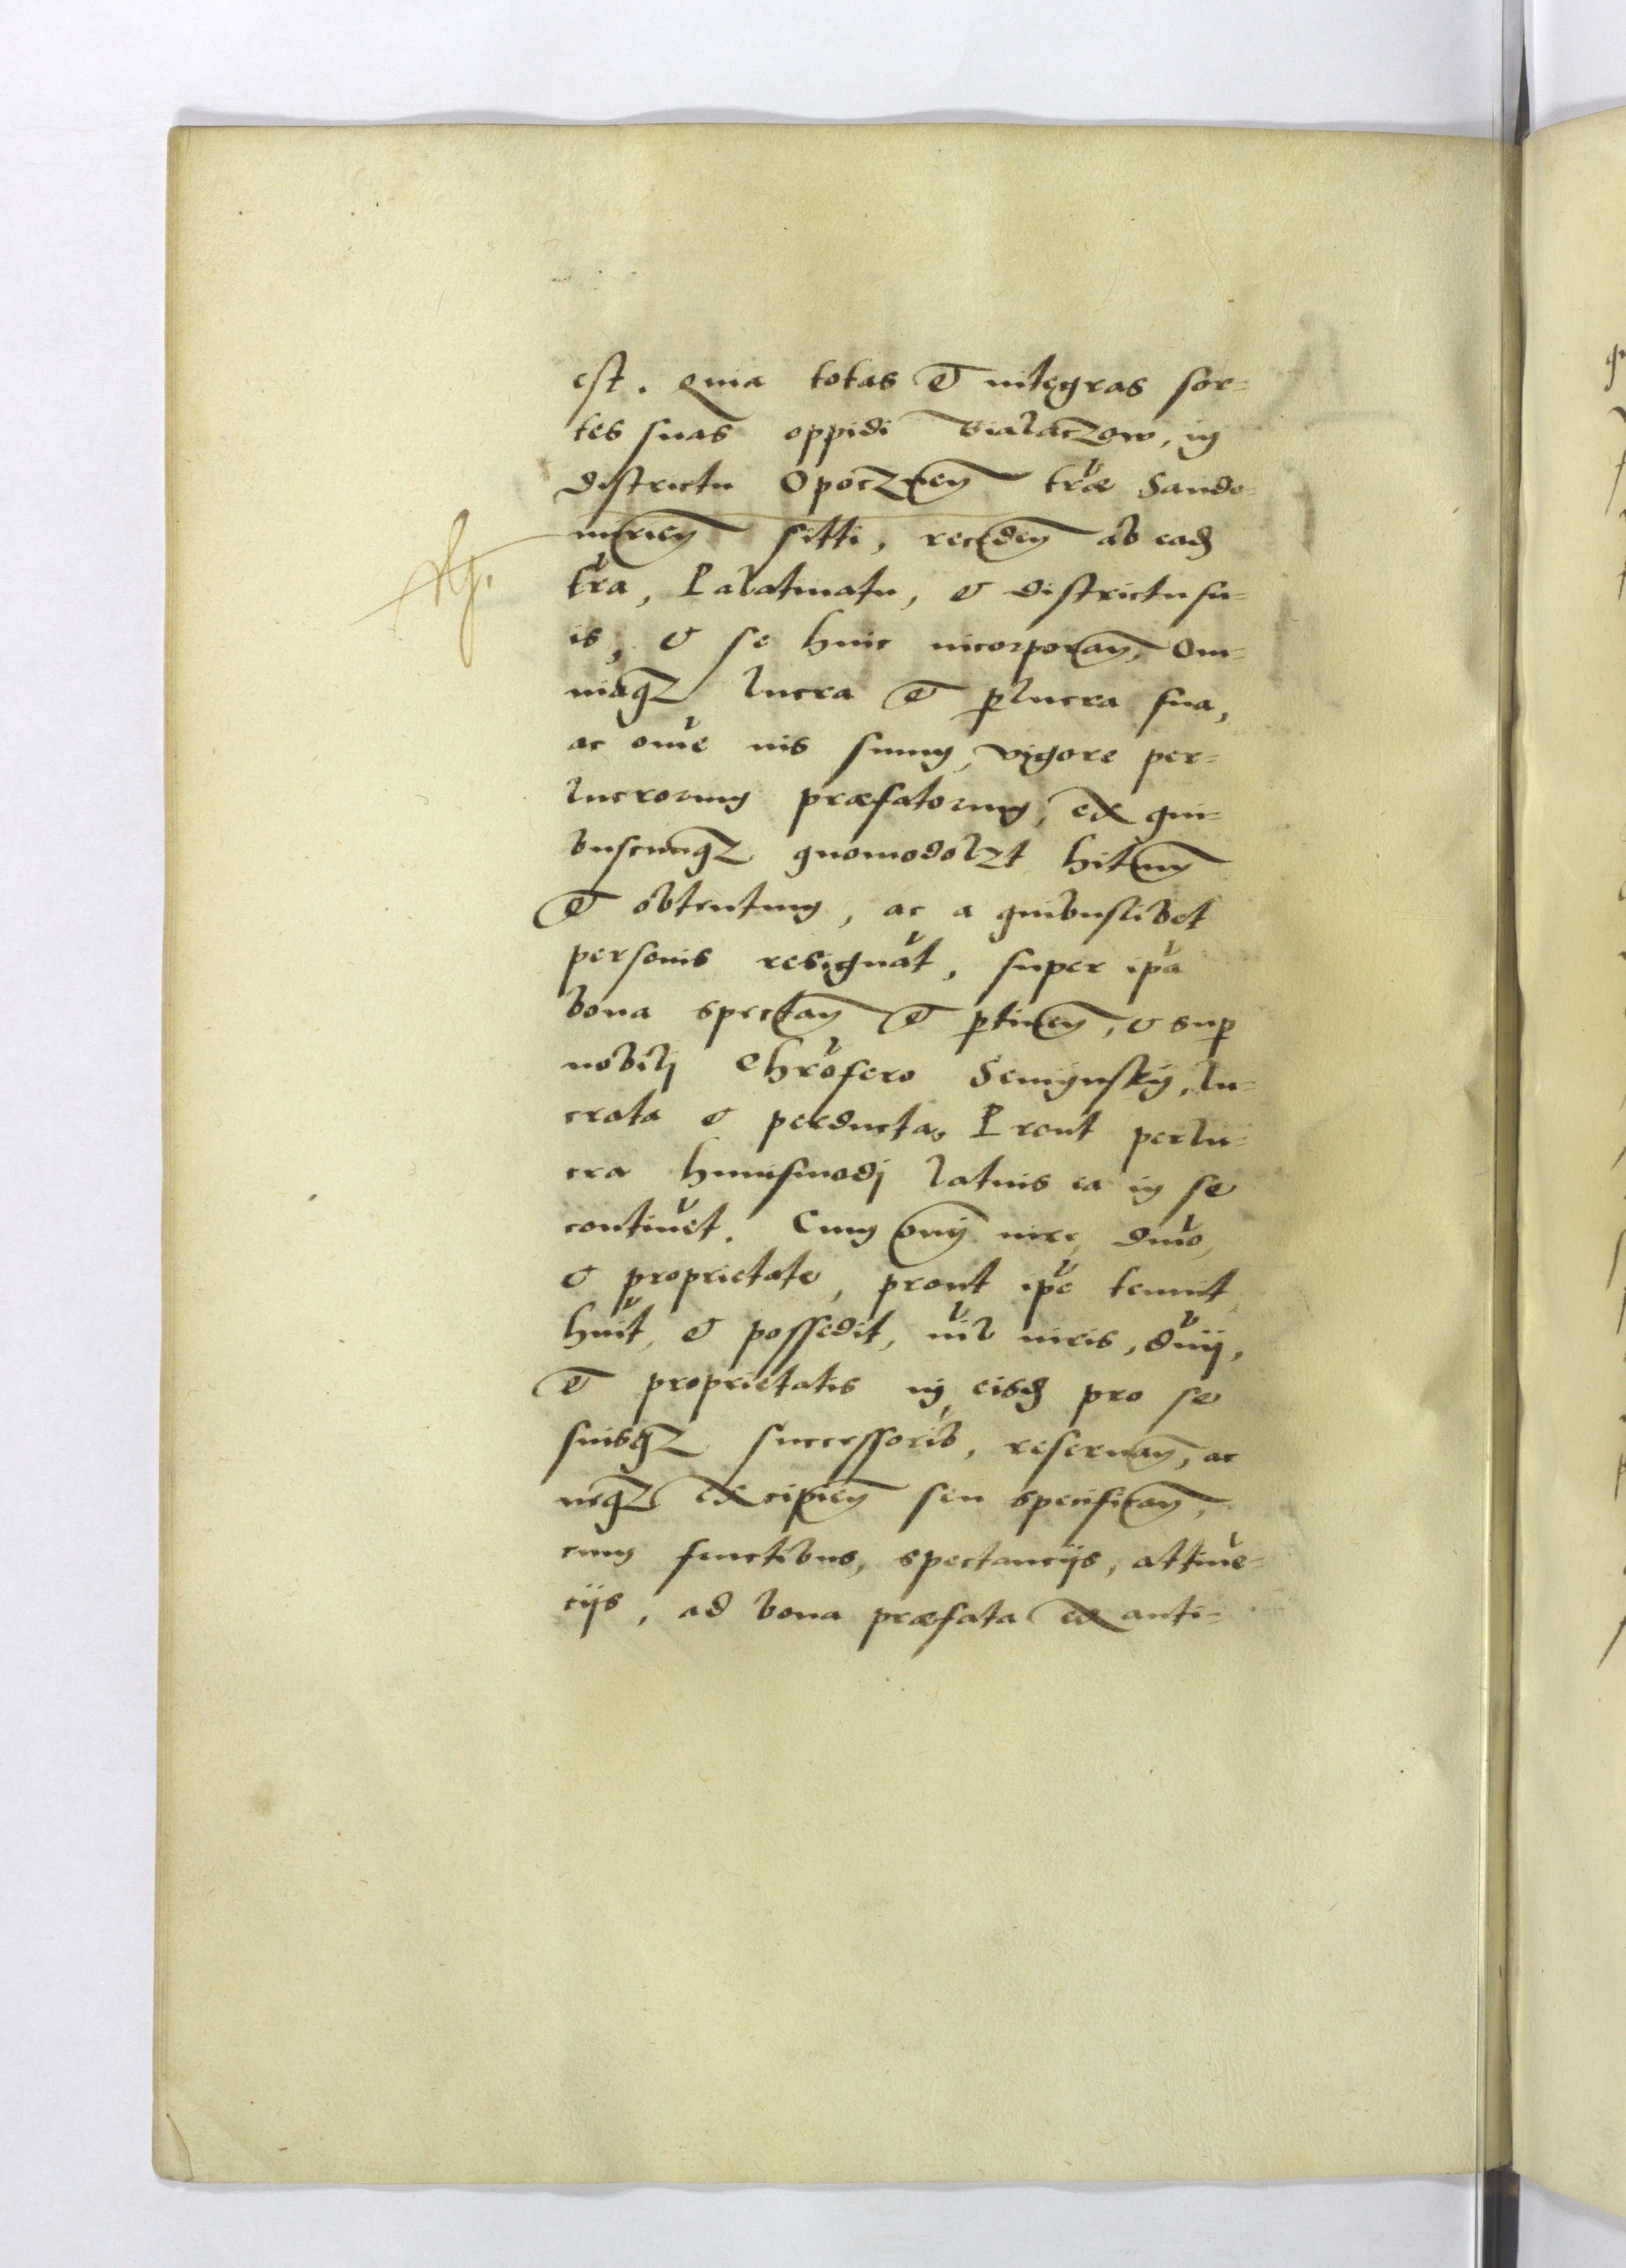 est. Quia totas et integras sor=
tes suas oppidi Bialaczow, in
districtu Opocznen̄ tr̃æ Sando=
mirien̄ sitti, receden̄ ab ead
tr̃a, Palatinatu, et districtu su=
is, et se huic incorporan̄, Om=
niaqz lucra et ꝑlucra sua,
ac om̃e ius suum, vigore per=
lucrorum præfatorum, ex qui=
buscunqz quomodolzt hitum
et obtentum, ac a quibuslibet
personis resignat̃, super ip̃a
bona spectan̄ et ꝑtinen̄, et suꝑ
nobilj Chr̃ofero Senigusky, lu=
crata et perducta, Prout perlu=
cra huiusmodj latius ea in se
contin̄et. Cum om̄j iure, dn̄io,
et proprietate, prout ip̃e tenuit,
huĩt, et possedit, nil̃ iuris, dn̄ij,
et proprietatis in eisd pro se
suisqz successorib, reseruan̄, ac
neqz excipien̄ seu specifican̄,
cum fructibus, spectancijs, attine=
cijs, ad bona præfata ex anti=